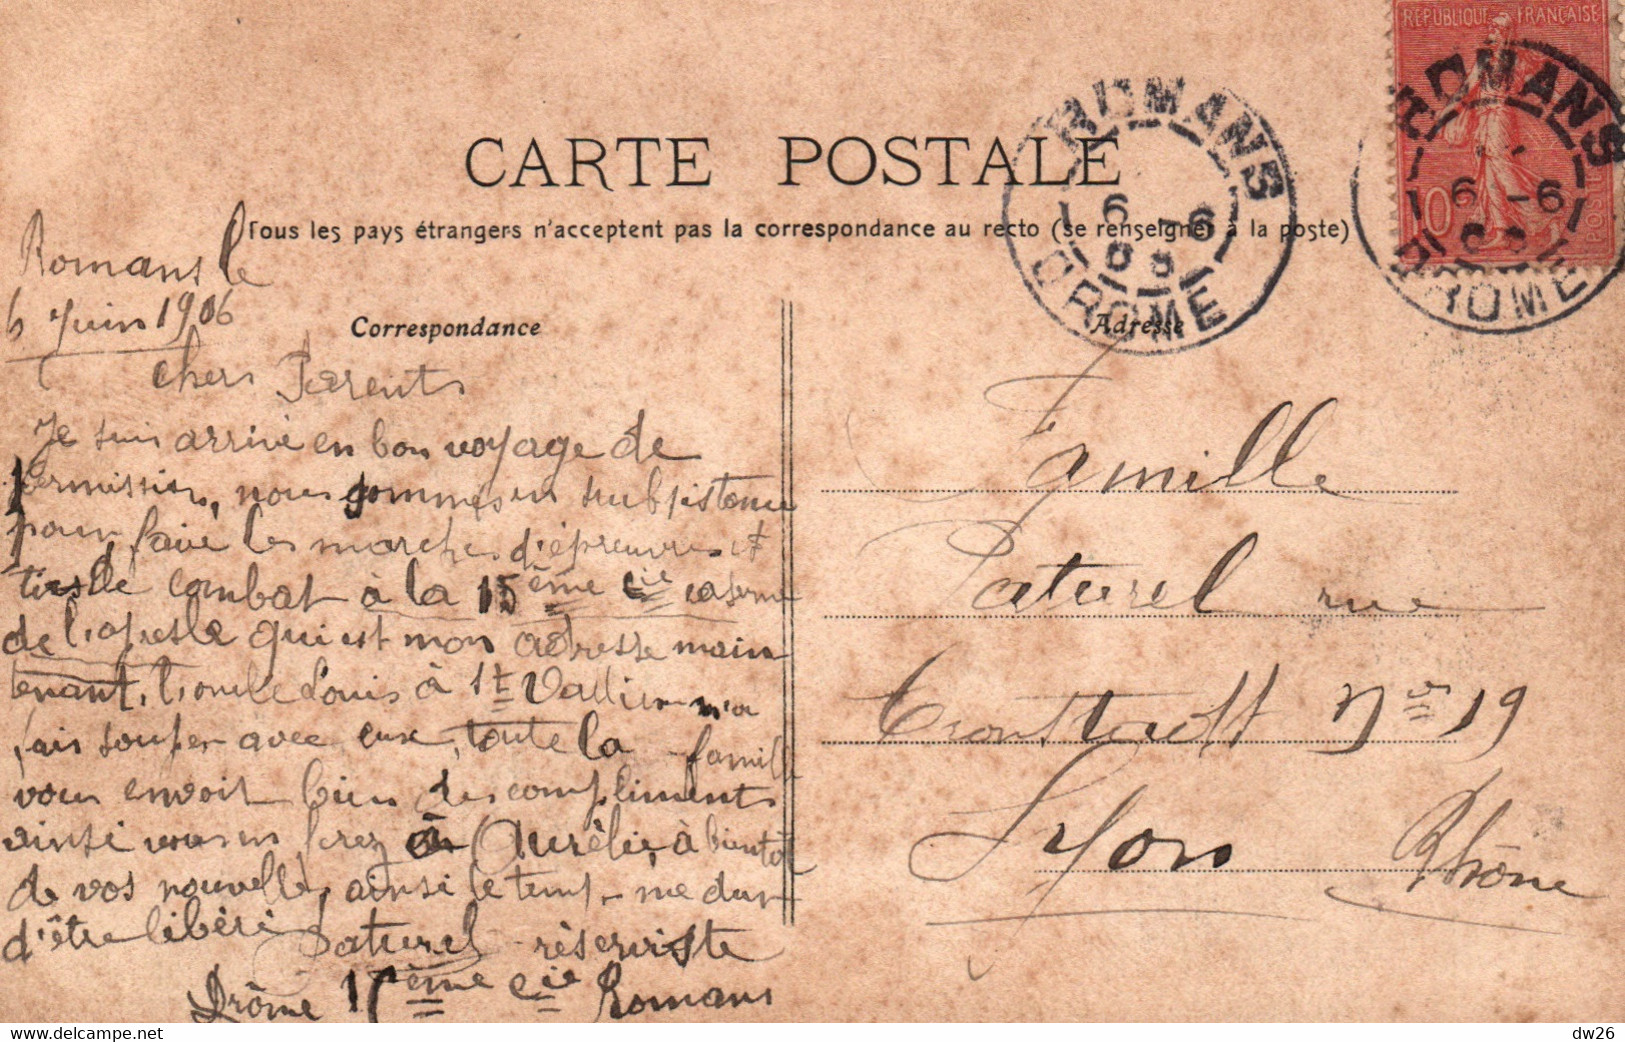 RÉPUBLIQUE FRANÇAISE
10
POSTES
ROMANS
6 -6
06
DROME
ROMANS
6 -6
06
DROME
CARTE POSTALE
Tous les pays étrangers n'acceptent pas la correspondance au recto (se renseigner à la poste)
Correspondance
Adresse
Romans le
6 Juin 1906
Chers Parents
Je suis arrivé en bon voyage de
permission, nous sommes en subsistance
pour faire les marches d'épreuves et
tirs de combat à la 15ème Cie caserne
de l'apresle qui est mon adresse main
tenant, l'oncle Louis à St Vallier m'a
fais souper avec eux, toute la famille
vous envoit bien des compliments
ainsi vous en ferez à Aurélie, à bientôt
de vos nouvelle, ainsi le temp me dur
d'être libéré Paturel réserviste
15ème Cie Romans
Drôme
Famille
Paturel rue
Cronstadt No 19
Lyon Rhône
dw26